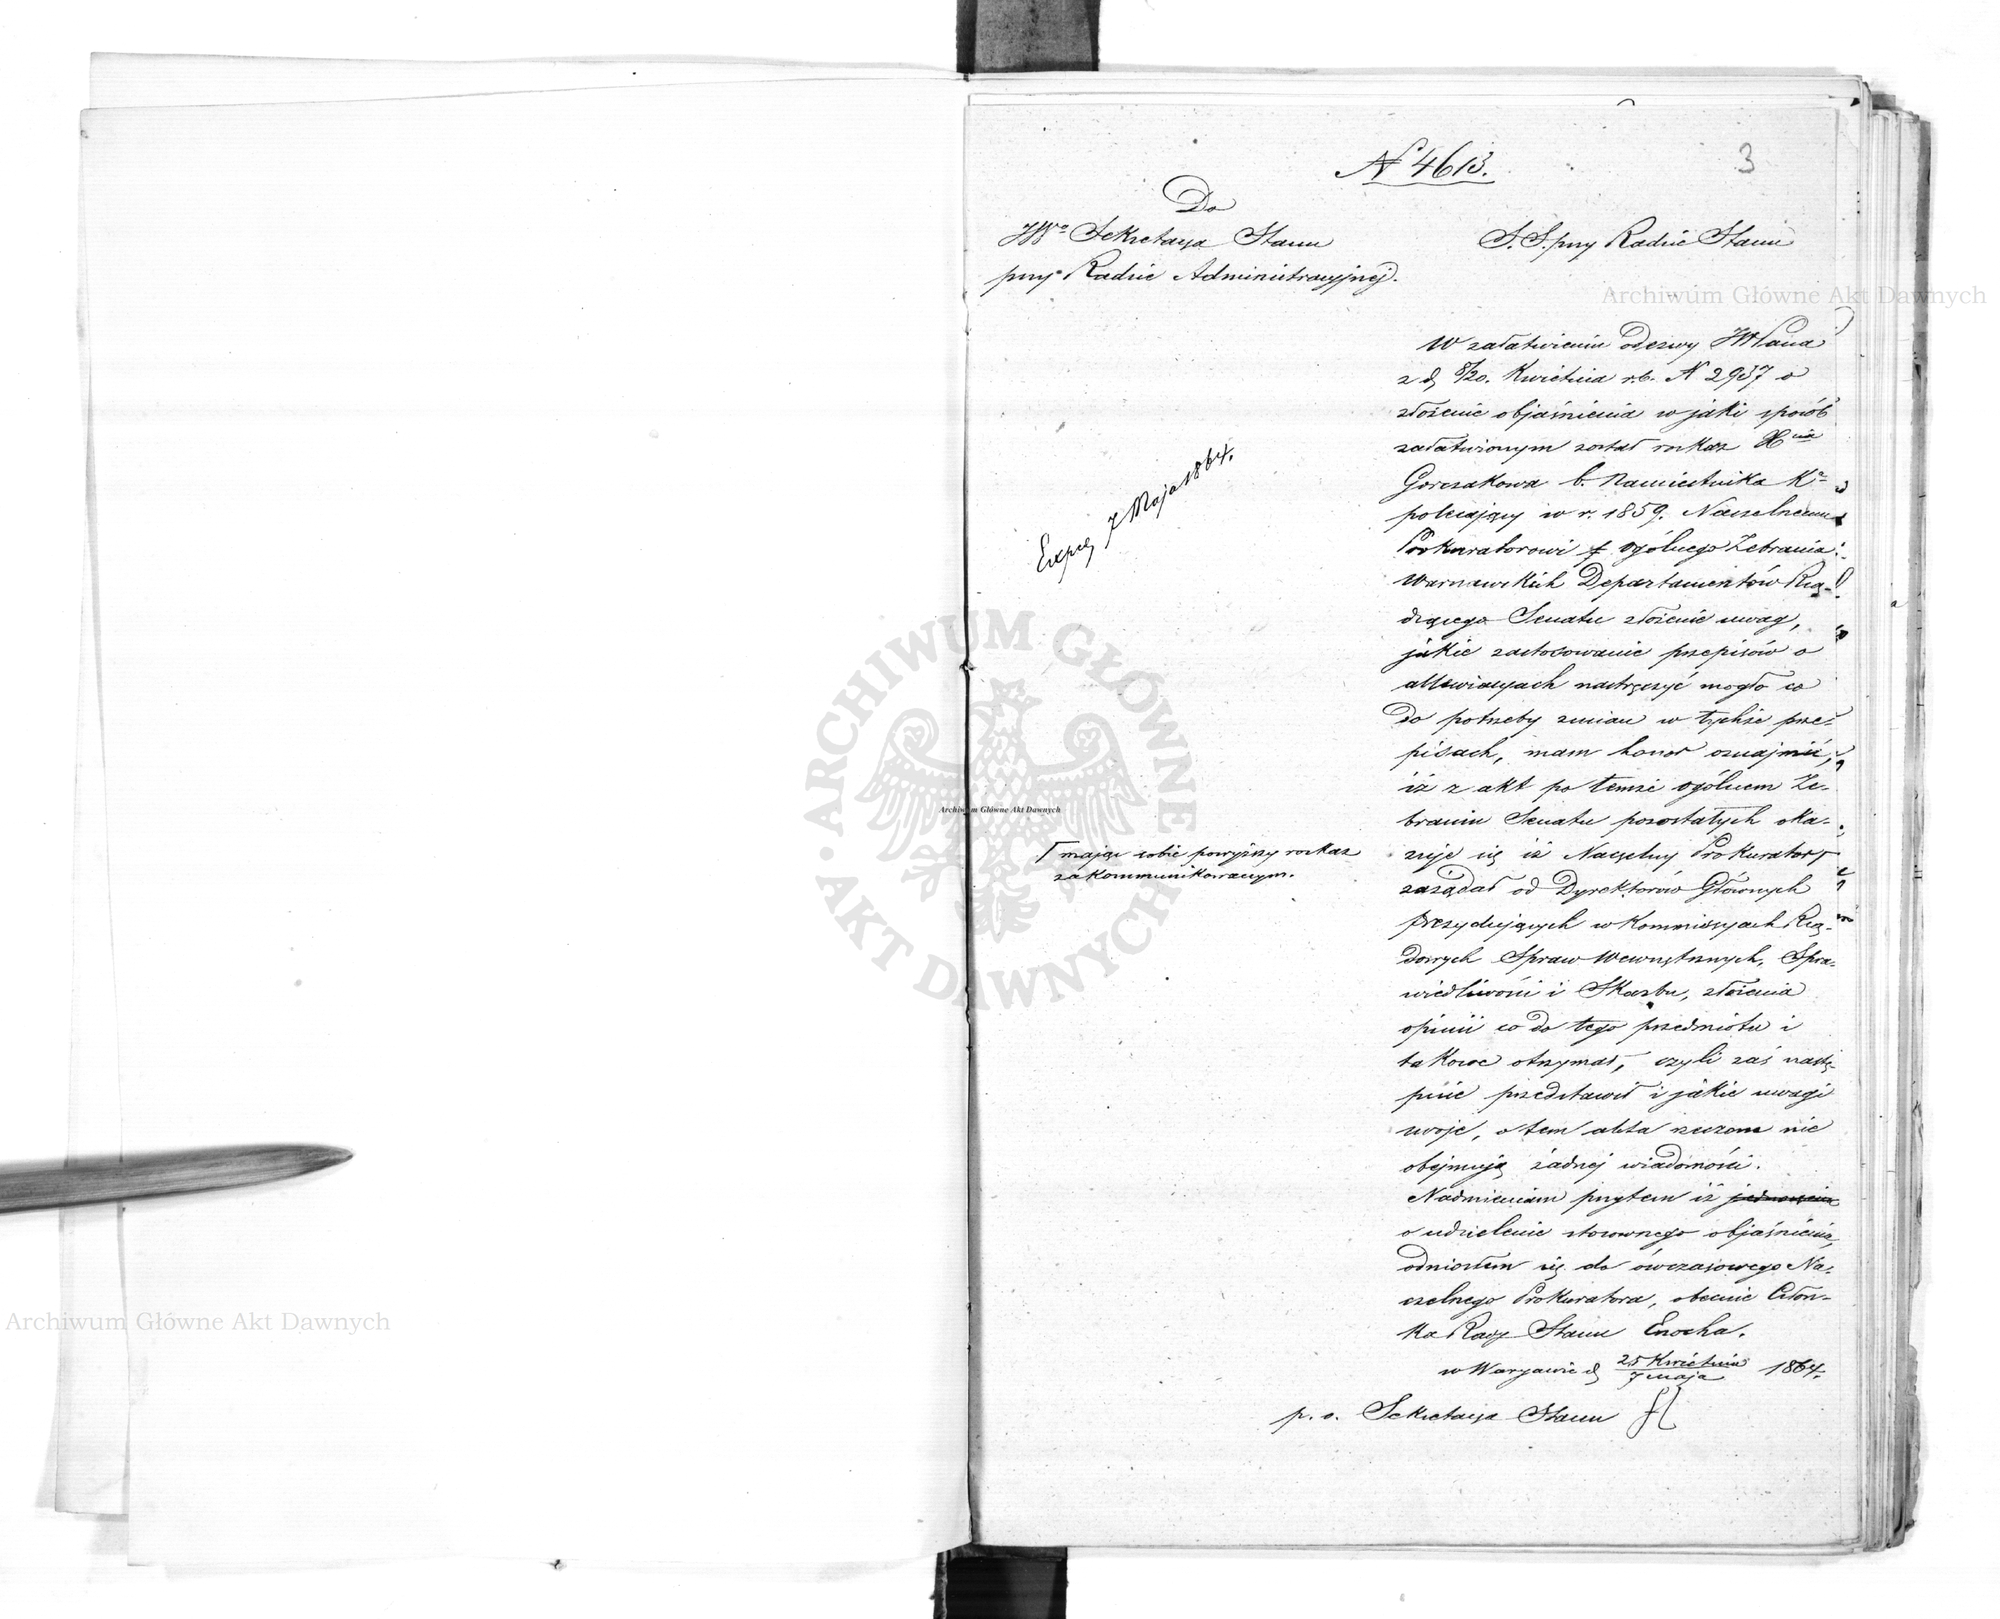 N 4613.
3
Do
JWo Sekretarza Stanu
przy Radzie Administracyjnej.
S. S. przy Radzie Stanu
W załatwieniu odezwy JWPana
z d. 8/20. Kwietnia r.b. N 2937 o
złożenie objaśnienia w jaki sposób
załatwionym został rozkaz Xcia
Gorczakowa b. Namiestnika Ka
polecający w r. 1859. Naczelnemu
Prokuratorowi ogólnego Zebrania
Warszawskich Departamentów Rzą-
dzącego Senatu złożenie uwag,
jakie zastosowanie przepisów o
allewiacyach nastręczyć mogło co
do potrzeby zmian w tychże prze-
pisach, mam honor oznajmić,
iż z akt po temże ogólnem Ze-
braniu Senatu pozostałych oka-
zuje się iż Naczelny Prokurator Γ
Γ mając sobie powyższy rozkaz
zakommunikowanym.
zażądał od Dyrektorów Głównych
prezydujących w Kommissyach Rzą-
dowych Spraw Wewnętrznych, Spra-
wiedliwości i Skarbu, złożenia
opinii co do tego przedmiotu i
takowe otrzymał, czyli zaś nastę-
pnie przedstawił i jakie uwagi
swoje, o tem akta rzeczone nie
obejmują żadnej wiadomości.
Nadmieniam przytem iż jednocześnie
o udzielenie stosownego objaśnienia,
odniosłem się do ówczasowego Na-
czelnego Prokuratora, obecnie Człon-
ka Rady Stanu Enocha.
w Warszawie d. 25 Kwietnia / 7 maja 1864.
p. o. Sekretarza Stanu
Exped. 7 Maja 1864.
Archiwum Główne Akt Dawnych
ARCHIWUM GŁÓWNE · AKT DAWNYCH ·
Archiwum Główne Akt Dawnych
Archiwum Główne Akt Dawnych